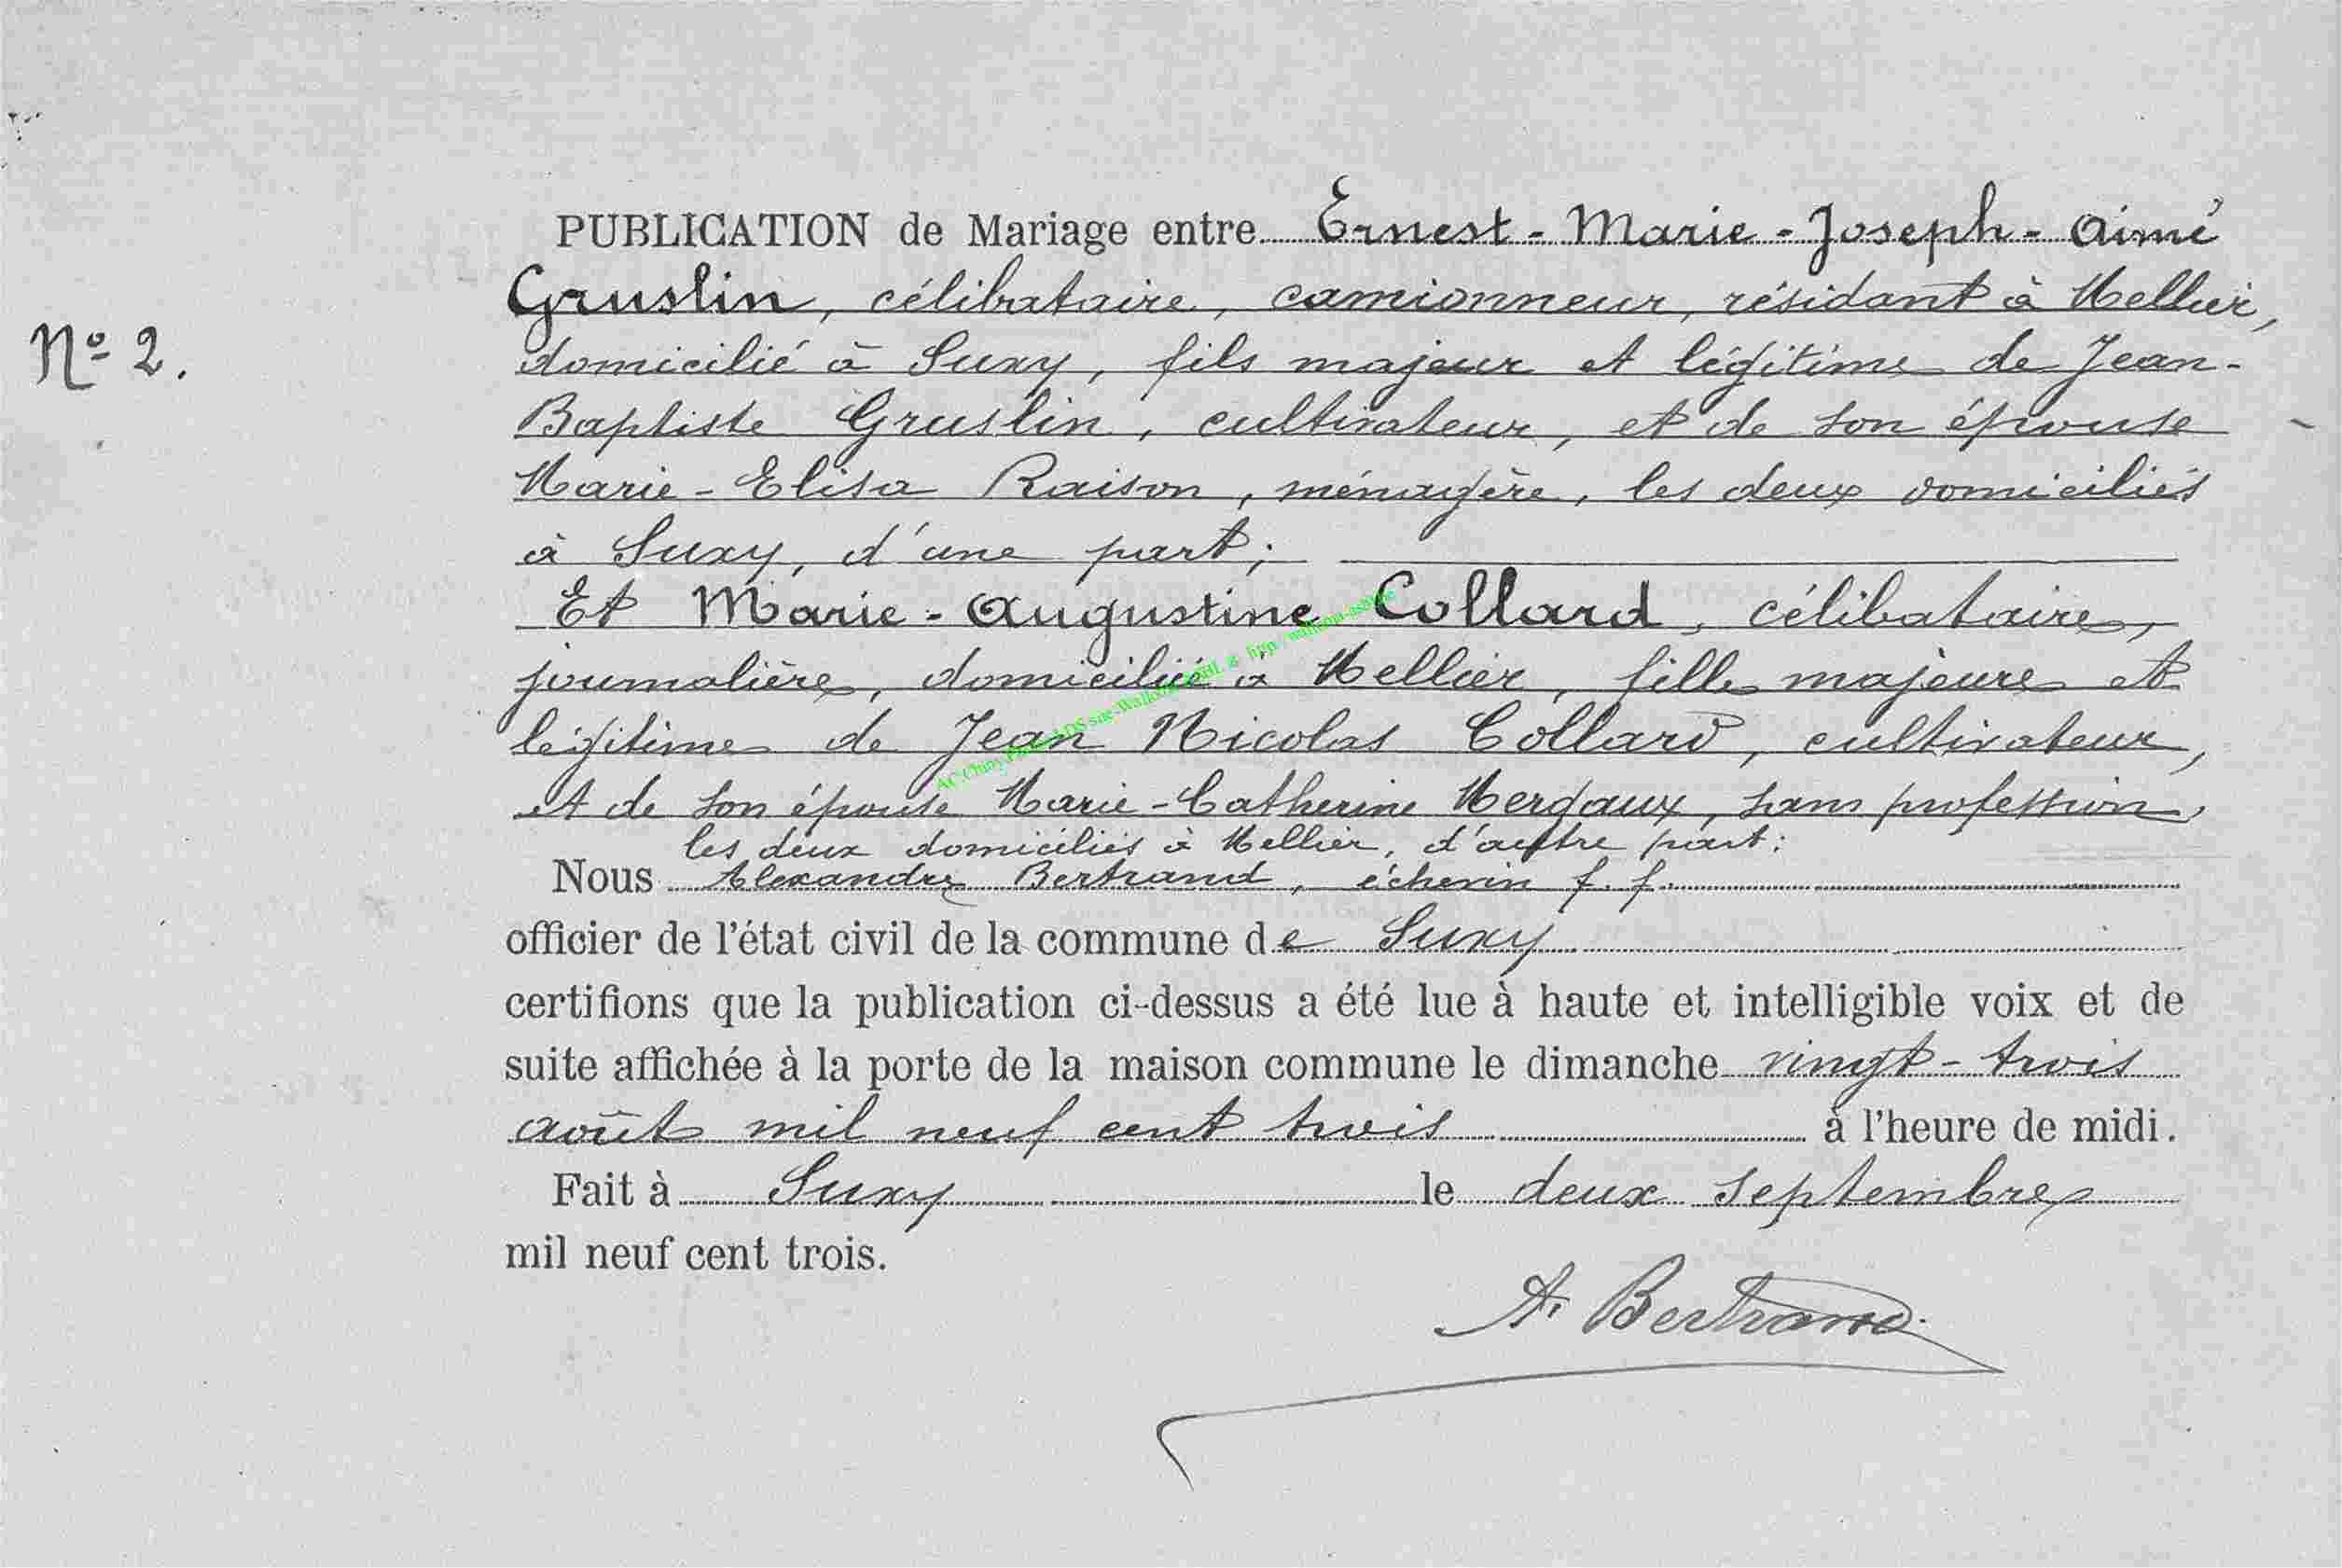 PUBLICATION de Mariage entre Ernest - Marie - Joseph - Aimé
Gruslin, célibataire, camionneur, résidant à Mellier,
N° 2.
domicilié à Suxy, fils majeur et légitime de Jean-
Baptiste Gruslin, cultivateur, et de son épouse
Marie - Elisa Raison, ménagère, les deux domiciliés
à Suxy, d'une part;
Et Marie - Augustine Collard, célibataire,
journalière, domiciliée à Mellier, fille majeure et
légitime de Jean Nicolas Collard, cultivateur,
et de son épouse Marie - Catherine Mergaux, sans profession,
les deux domiciliés à Mellier, d'autre part:
Nous Alexandre Bertrand, échevin f. f.
officier de l'état civil de la commune de Suxy
certifions que la publication ci-dessus a été lue à haute et intelligible voix et de
suite affichée à la porte de la maison commune le dimanche vingt - trois
août mil neuf cent trois à l'heure de midi.
Fait à Suxy le deux septembre
mil neuf cent trois.
A. Bertrand.